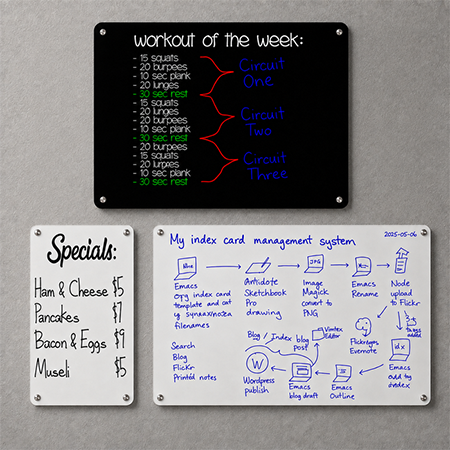 workout of the week:
- 15 squats
- 20 burpees
- 10 sec plank
- 20 lunges
- 30 sec rest
- 15 squats
- 20 lunges
- 20 burpees
- 10 sec plank
- 30 sec rest
- 20 burpees
- 15 squats
- 20 lunges
- 10 sec plank
- 30 sec rest
Circuit
One
Circuit
Two
Circuit
Three
Specials:
Ham & Cheese $5
Pancakes $7
Bacon & Eggs $9
Museli $5
My index card management system
2025-05-06
Emacs
copy index card
template and cat
filenames
Antidote
Sketchbook
Pro
drawing
JPG
Image
Magick
convert to
PNG
Emacs
Rename
Node
upload
to Flickr
tags added
Flickr
Evernote
idx
Emacs
add to
index
Emacs
Outline
Emacs
blog draft
Vimtex
Editor
Blog / Index blog
Post
W
Wordpress
publish
Search
Blog
Flickr
Printed notes